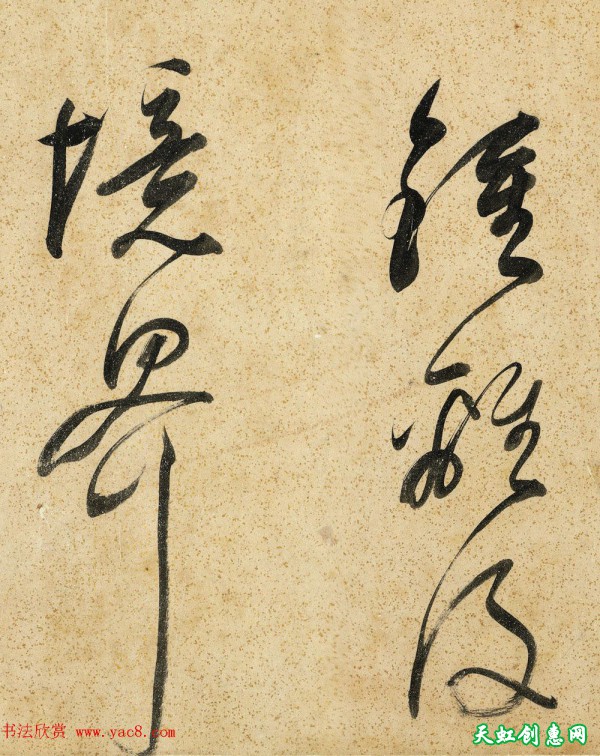 鍾離
境界
书法欣赏 www.yac8.com
天虹创惠网